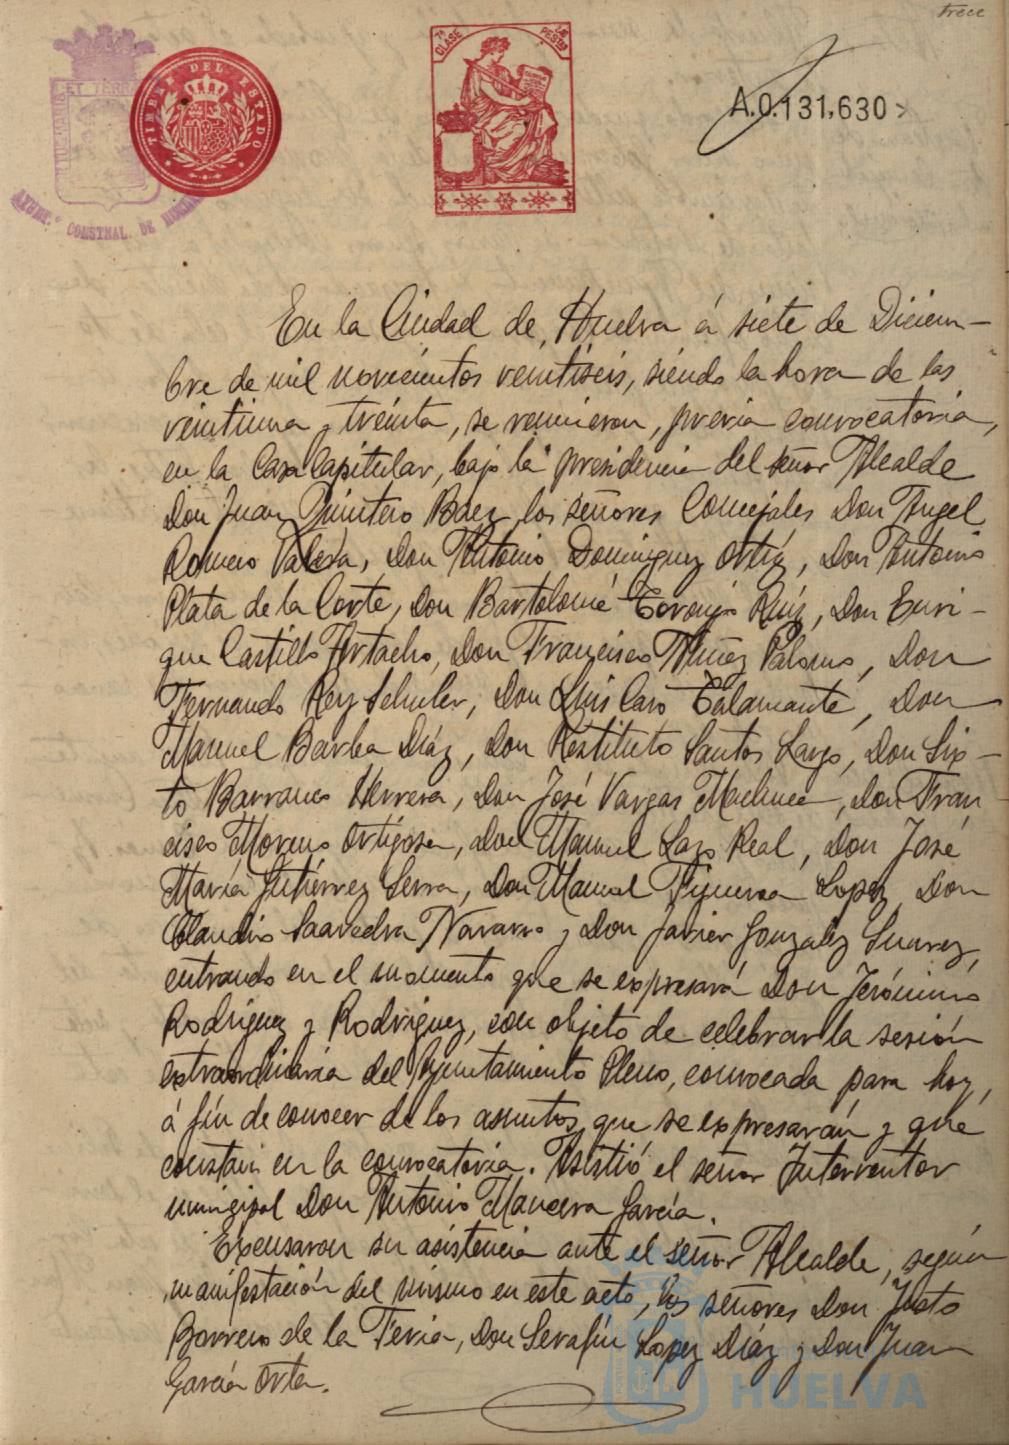 trece
7ª CLASE
PESTAS
TIMBRE DEL ESTADO
ET TERRÆ
AYUNT.º CONSTNAL. DE HUELVA
A.0.131,630
En la Ciudad de Huelva á siete de Diciem-
bre de mil novecientos veintiseis, siendo la hora de las
veintiuna y treinta, se reunieron, previa convocatoria,
en la Casa Capitular, bajo la presidencia del señor Alcalde
Don Juan Quintero Baez, los señores Concejales Don Angel
Romero Valeda, Don Antonio Dominguez Ortíz, Don Antonio
Plata de la Corte, Don Bartolomé Toronjo Ruíz, Don Enri-
que Castillo Artacho, Don Francisco Muñoz Palomo, Don
Fernando Rey Schuler, Don Luis Caro Talamante, Don
Manuel Barba Díaz, Don Restituto Santos Lazo, Don Six-
to Barranco Herrera, Don José Vargas Machuca, Don Fran-
cisco Moreno Ortigosa, Don Manuel Lazo Real, Don José
María Gutiérrez Serra, Don Manuel Figueroa Lopez, Don
Claudio Saavedra Navarro y Don Javier Gonzalez Suarez,
entrando en el momento que se expresará Don Jerónimo
Rodriguez y Rodriguez, con objeto de celebrar la sesión
extraordinaria del Ayuntamiento Pleno, convocada para hoy,
á fin de conocer de los asuntos que se expresarán y que
constan en la convocatoria. Asistió el señor Interventor
municipal Don Antonio Mancera García.
Excusaron su asistencia ante el señor Alcalde, según
manifestación del mismo en este acto, los señores Don Justo
Borrero de la Feria, Don Serafín Lopez Díaz y Don Juan
García Orta.
HUELVA